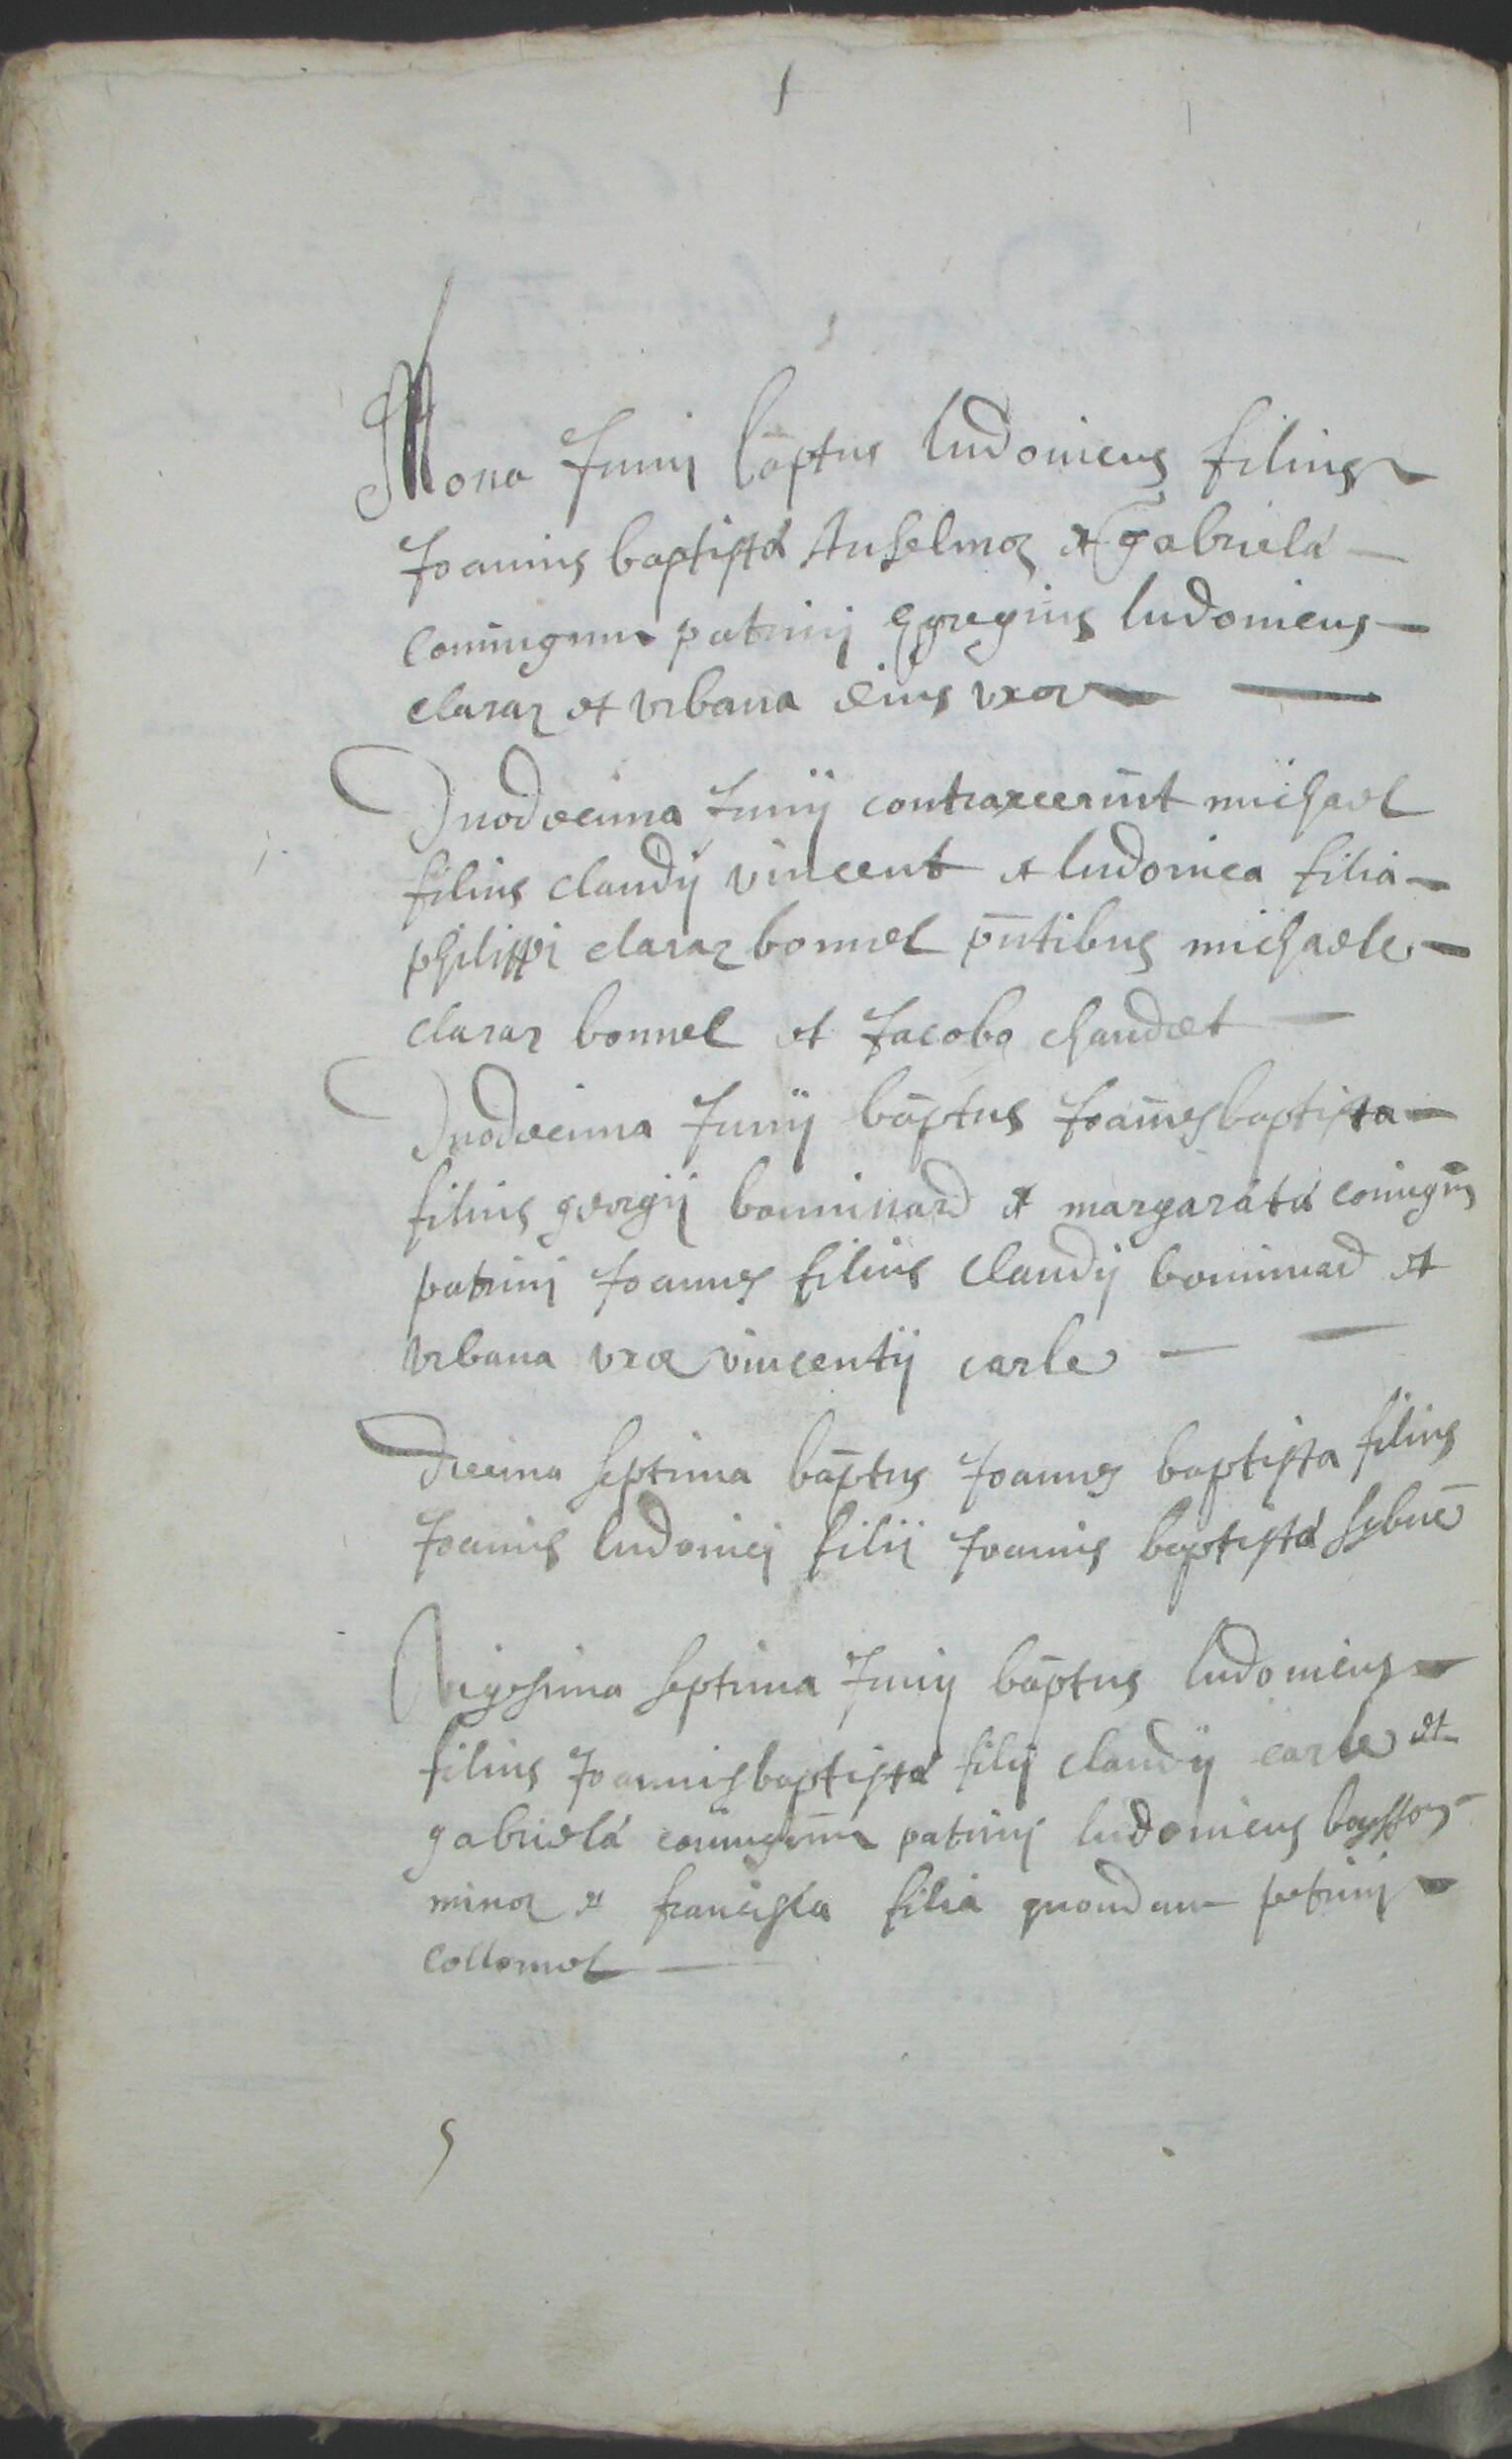 Nona Junij bāptus ludovicus filius
Joannis baptistæ Anselmoz et gabrielæ
coniugum patrinj Egregius ludovicus
claraz et vrbana eius vxor
Duodecima Junij contraxcerūt michael
filius claudij vincent et ludovica filia
philippi claraz bonnel pn̄tibus michaele
claraz bonnel et Jacobo chaudet
Duodecima Junij bāptus Joānesbaptista
filius georgij bouuinard et margaratæ coniugū
patrinj Joannes filius claudij bouuinard et
vrbana vxor vincentij carle
Decima septima bāptus Joannes baptista filius
Joannis ludovicj filij Joannis baptistæ
Vigesima septima Junij bāptus ludovicus
filius Joannisbaptistæ filij claudij carle et
gabrielæ coniugum patrinj ludovicus
minor et francisca filia quondam petrinj
collomel